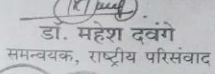 डॉ. महेश दवंगे
समन्वयक, राष्ट्रीय परिसंवाद